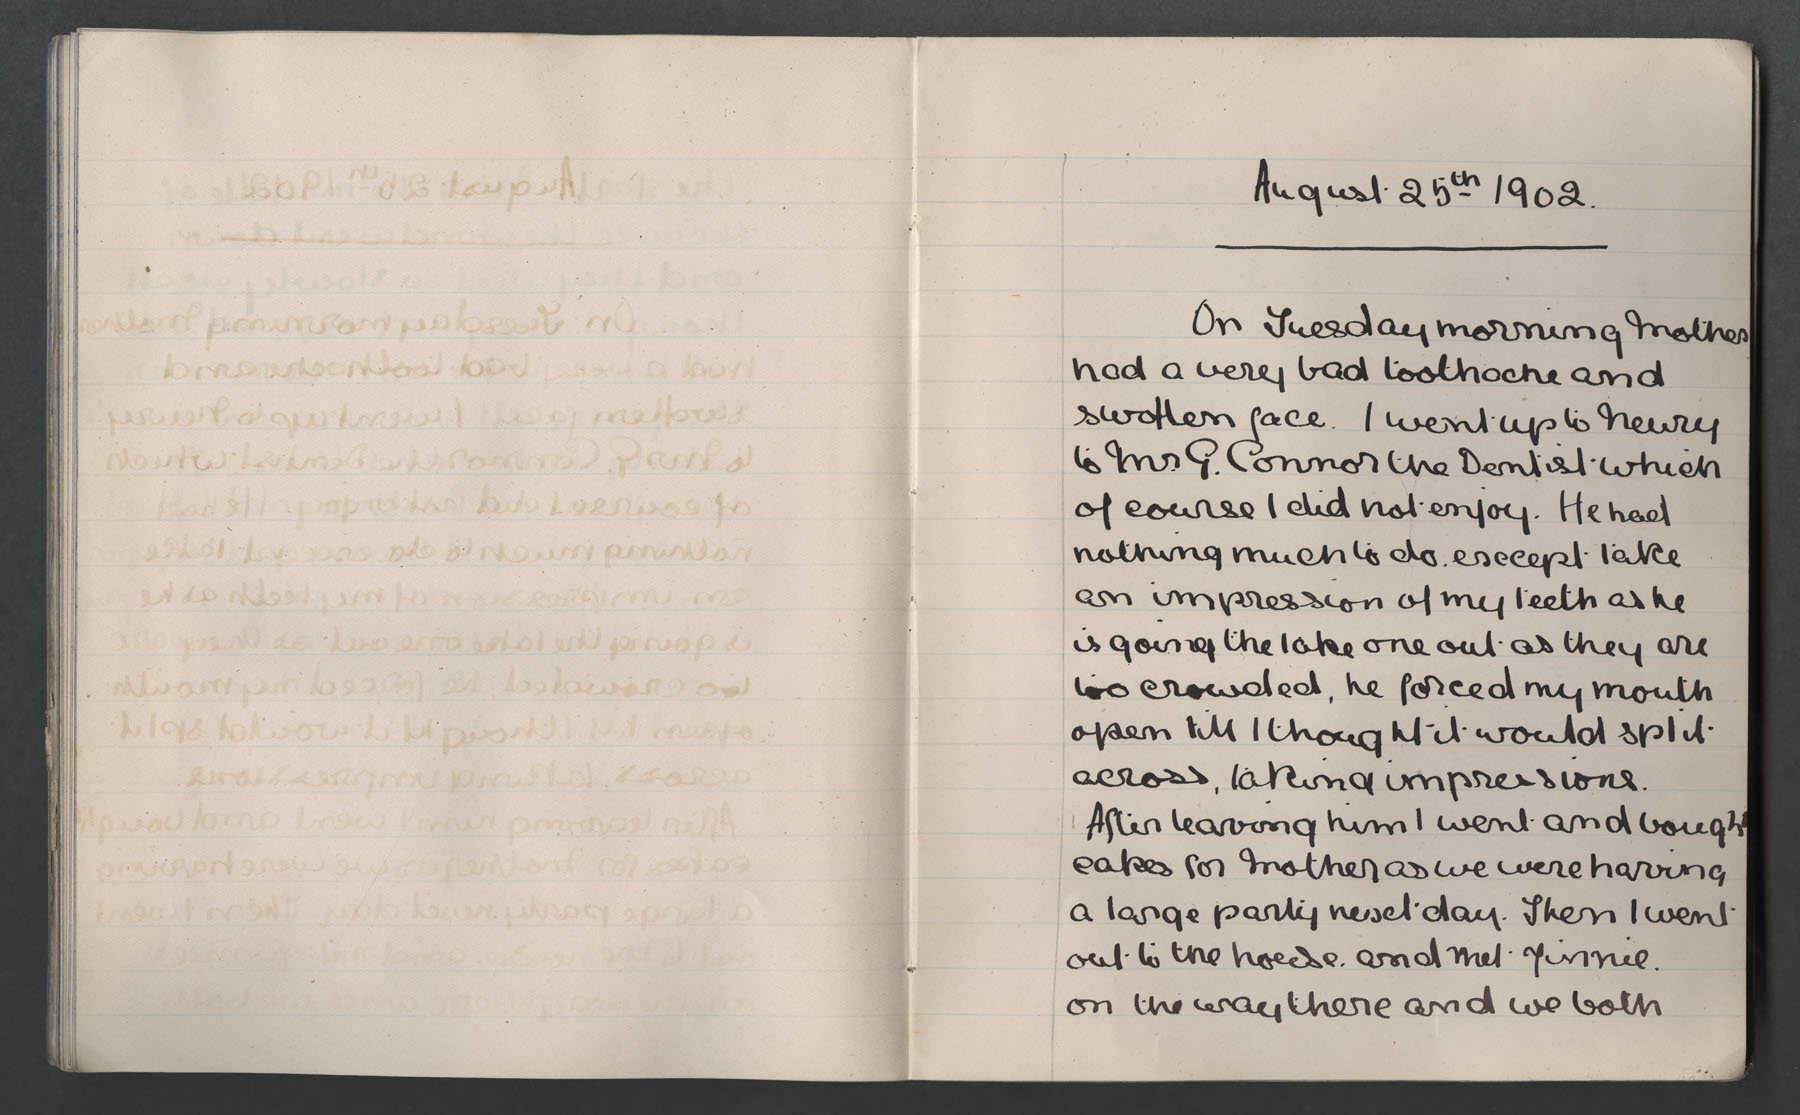 August 25th 1902.
On Tuesday morning Mother
had a very bad toothache and
swollen face. I went up to Newry
to Mr G. Connor the Dentist which
of course I did not enjoy. He had
nothing much to do. except take
an impression of my teeth as he
is going the take one out as they are
too crowded, he forced my mouth
open till I thought it would split
across, taking impressions.
After leaving him I went and bought
cakes for Mother as we were having
a large party next day. Then I went
out to the house. and met
on the way there and we both